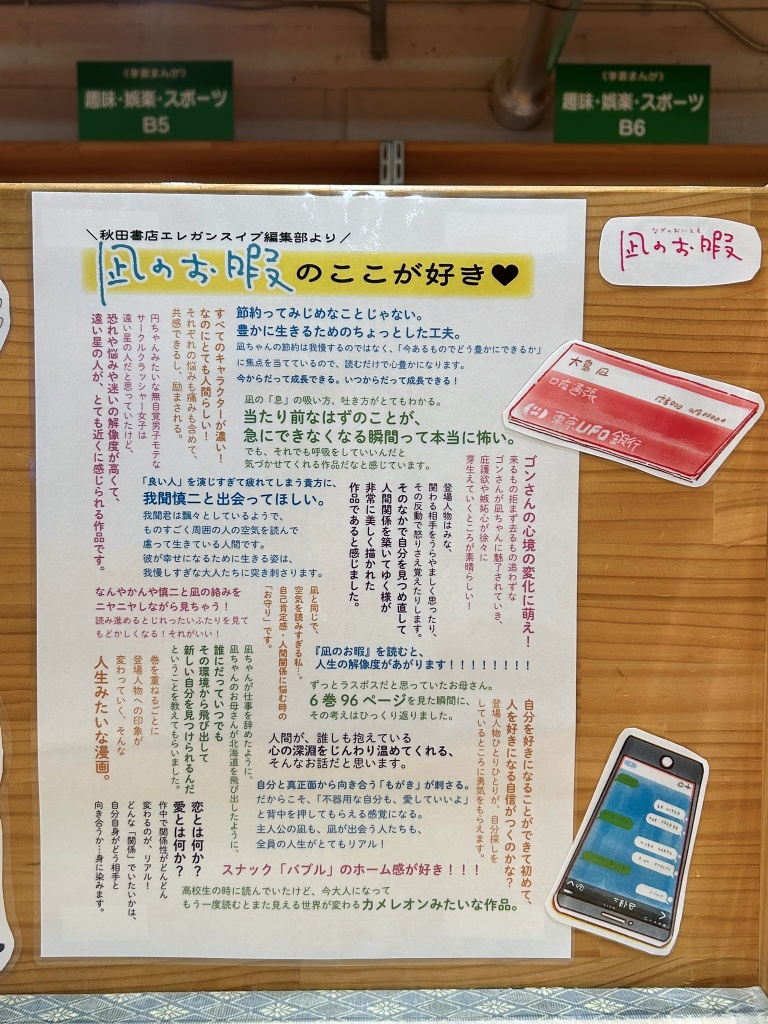 《学習まんが》
趣味・娯楽・スポーツ
B5
《学習まんが》
趣味・娯楽・スポーツ
B6
＼秋田書店エレガンスイブ編集部より／
凪のお暇のここが好き♥
なぎのおいとま
凪のお暇
節約ってみじめなことじゃない。
豊かに生きるためのちょっとした工夫。
凪ちゃんの節約は我慢するのではなく、「今あるものでどう豊かにできるか」
に焦点を当てているので、読むだけで心豊かになります。
今からだって成長できる。いつからだって成長できる！
すべてのキャラクターが濃い！
なのにとても人間らしい！
それぞれの悩みも痛みも含めて、
共感できるし、励まされる。
円ちゃんみたいな無自覚男子モテな
サークルクラッシャー女子は
遠い星の人だと思っていたけど、
恐れや悩みや迷いの解像度が高くて、
遠い星の人が、とても近くに感じられる作品です。
凪の「息」の吸い方、吐き方がとてもわかる。
当たり前なはずのことが、
急にできなくなる瞬間って本当に怖い。
でも、それでも呼吸をしていいんだと
気づかせてくれる作品だなと感じています。
大島 凪
口座通帳
東京UFO銀行
ゴンさんの心境の変化に萌え！
来るもの拒まず去るもの追わずな
ゴンさんが凪ちゃんに魅了されていき、
庇護欲や嫉妬心が徐々に
芽生えていくところが素晴らしい！
「良い人」を演じすぎて疲れてしまう貴方に、
我聞慎二と出会ってほしい。
我聞君は飄々としているようで、
ものすごく周囲の人の空気を読んで
慮って生きている人間です。
彼が幸せになるために生きる姿は、
我慢しすぎな大人たちに突き刺さります。
登場人物はみな、
関わる相手をうらやましく思ったり、
その反動で怒りさえ覚えたりします。
そのなかで自分を見つめ直して
人間関係を築いてゆく様が
非常に美しく描かれた
作品であると感じました。
なんやかんや慎二と凪の絡みを
ニヤニヤしながら見ちゃう！
読み進めるとじれったいふたりを見て
もどかしくなる！それがいい！
凪と同じで、
空気を読みすぎる私…。
自己肯定感・人間関係に悩む時の
「お守り」です。
『凪のお暇』を読むと、
人生の解像度があがります！！！！！！！！！
巻を重ねるごとに
登場人物への印象が
変わっていく、そんな
人生みたいな漫画。
凪ちゃんが仕事を辞めたように、
凪ちゃんのお母さんが北海道を飛び出したように、
誰にだっていつでも
その環境から飛び出して
新しい自分を見つけられるんだ
ということを教えてもらいました。
ずっとラスボスだと思っていたお母さん。
6巻96ページを見た瞬間に、
その考えはひっくり返りました。
人間が、誰しも抱えている
心の深淵をじんわり温めてくれる、
そんなお話だと思います。
自分を好きになることができて初めて、
人を好きになる自信がつくのかな？
登場人物ひとりひとりが、自分探しを
しているところに勇気をもらえます。
自分と真正面から向き合う「もがき」が刺さる。
だからこそ、「不器用な自分も、愛していいよ」
と背中を押してもらえる感覚になる。
主人公の凪も、凪が出会う人たちも、
全員の人生がとてもリアル！
恋とは何か？
愛とは何か？
作中で関係性がどんどん
変わるのが、リアル！
どんな「関係」でいたいかは、
自分自身がどう相手と
向き合うか…身に染みます。
スナック「バブル」のホーム感が好き！！！
高校生の時に読んでいたけど、今大人になって
もう一度読むとまた見える世界が変わるカメレオンみたいな作品。